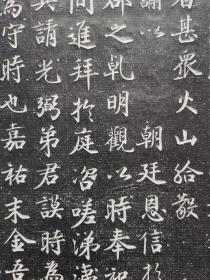 者甚衆火山
謝以　朝廷恩信於
郡之乹明觀以時奉
間進拜於庭咨嗟涕
其請光弼弟君謨時為
為守時也嘉祐末金吾